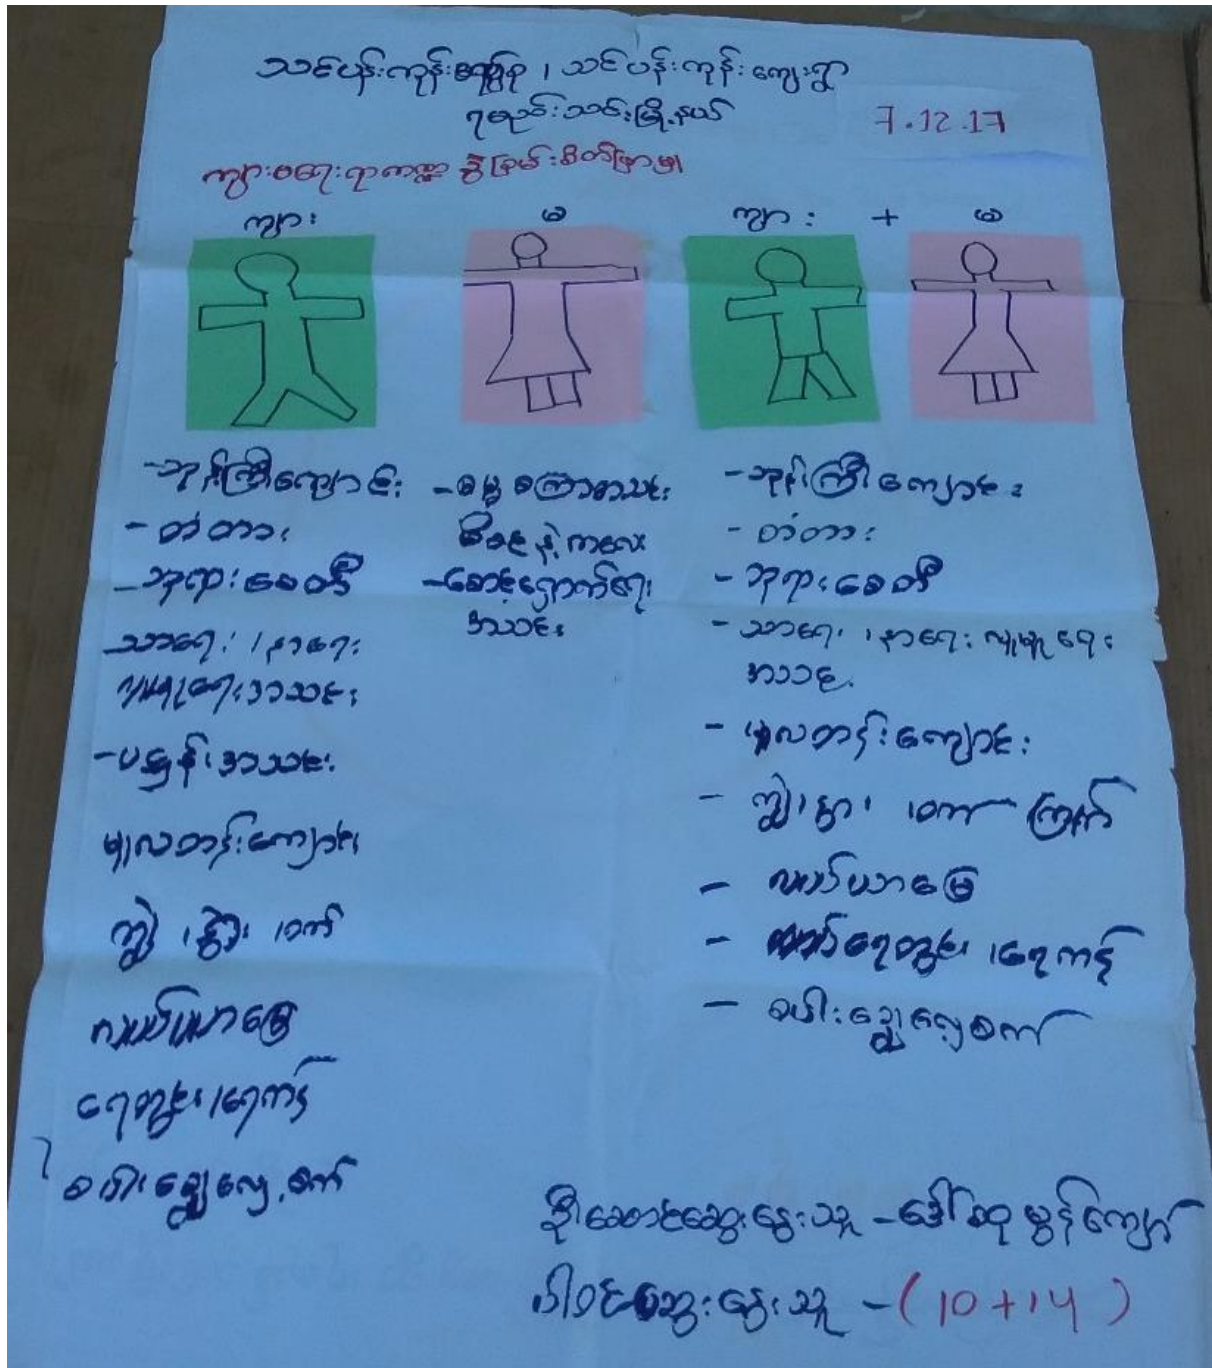 သင်ပန်းကုန်းအုပ်စု ၊ သင်ပန်းကုန်းကျေးရွာ
ရမည်းသင်းမြို့နယ်
7.12.17
ကျား မ ကျား + မ
-ဘုန်းကြီးကျောင်း
- တံတား
-ဘုရားစေတီ
သာရေး ၊ နာရေး
လူမှုရေးအသင်း
-ပဋ္ဌာန်းအသင်း
မူလတန်းကျောင်း
ကျွဲ ၊နွား ၊ဝက်
လယ်ယာမြေ
ရေတွင်း ၊ရေကန်
စပါးချွေလှေ့စက်
-ဓမ္မစကြာအသင်း
မိခင်နှင့်ကလေး
-စောင့်ရှောက်ရေး
အသင်း
-ဘုန်းကြီးကျောင်း
- တံတား
- ဘုရားစေတီ
- သာရေး ၊နာရေး လူမှုရေး
အသင်း
- မူလတန်းကျောင်း
- ကျွဲ ၊နွား ၊ဝက် ကြက်
- လယ်ယာမြေ
- ရေတွင်း ၊ရေကန်
- စပါးချွေလှေ့စက်
ဦးဆောင်ဆွေးနွေးသူ -ဒေါ်ဆုမွန်ကျော်
ပါဝင်ဆွေးနွေးသူ -( 10 + 14 )